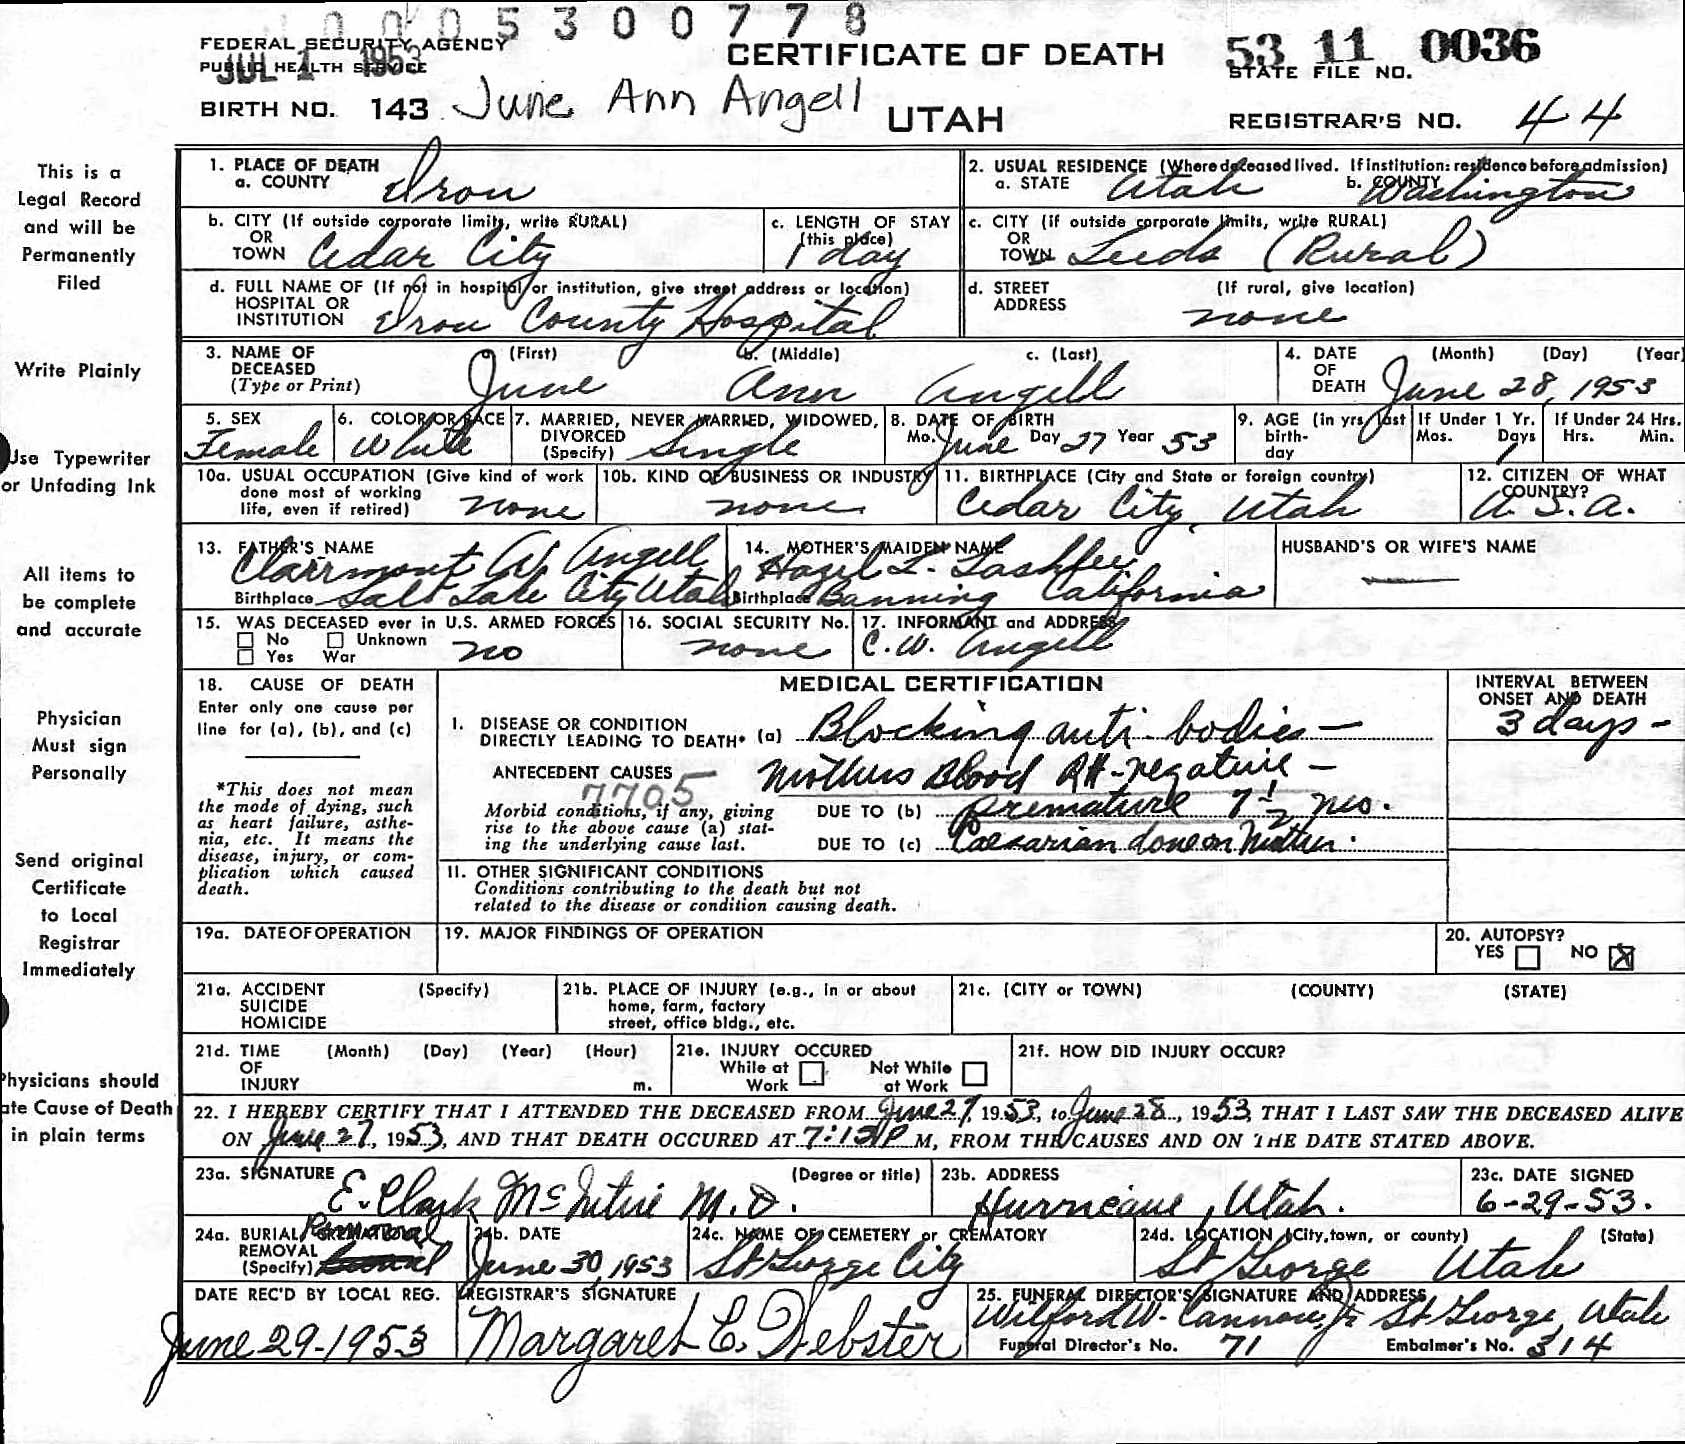 1 0 0 0 5 3 0 0 7 7 8
FEDERAL SECURITY AGENCY
PUBLIC HEALTH SERVICE
JUL 1 1953
CERTIFICATE OF DEATH
53 11 0036
STATE FILE NO.
BIRTH NO. 143 June Ann Angell
UTAH
REGISTRAR'S NO. 44
This is a
Legal Record
and will be
Permanently
Filed
Write Plainly
Use Typewriter
or Unfading Ink
All items to
be complete
and accurate
Physician
Must sign
Personally
Send original
Certificate
to Local
Registrar
Immediately
Physicians should
ate Cause of Death
in plain terms
1. PLACE OF DEATH
a. COUNTY Iron
2. USUAL RESIDENCE (Where deceased lived. If institution: residence before admission)
a. STATE Utah b. COUNTY Washington
b. CITY (If outside corporate limits, write RURAL)
OR
TOWN Cedar City
c. LENGTH OF STAY
(this place)
1 day
c. CITY (if outside corporate limits, write RURAL)
OR
TOWN Leeds (Rural)
d. FULL NAME OF (If not in hospital or institution, give street address or location)
HOSPITAL OR
INSTITUTION Iron County Hospital
d. STREET (If rural, give location)
ADDRESS none
3. NAME OF DECEASED (Type or Print)
a. (First) b. (Middle) c. (Last)
June Ann Angell
4. DATE OF DEATH (Month) (Day) (Year)
June 28, 1953
5. SEX
Female
6. COLOR OR RACE
White
7. MARRIED, NEVER MARRIED, WIDOWED,
DIVORCED
(Specify) Single
8. DATE OF BIRTH
Mo. June Day 27 Year 53
9. AGE (in yrs. last
birth-
day
If Under 1 Yr.
Mos. Days
1
If Under 24 Hrs.
Hrs. Min.
10a. USUAL OCCUPATION (Give kind of work
done most of working
life, even if retired) none
10b. KIND OF BUSINESS OR INDUSTRY
none
11. BIRTHPLACE (City and State or foreign country)
Cedar City, Utah
12. CITIZEN OF WHAT
COUNTRY?
U.S.A.
13. FATHER'S NAME
Clairmont W. Angell
Birthplace Salt Lake City Utah
14. MOTHER'S MAIDEN NAME
Hazel L. Lashlee
Birthplace Banning California
HUSBAND'S OR WIFE'S NAME
15. WAS DECEASED ever in U.S. ARMED FORCES
No Unknown
Yes War no
16. SOCIAL SECURITY No.
none
17. INFORMANT and ADDRESS
C.W. Angell
18. CAUSE OF DEATH
Enter only one cause per
line for (a), (b), and (c)
*This does not mean
the mode of dying, such
as heart failure, asthe-
nia, etc. It means the
disease, injury, or com-
plication which caused
death.
MEDICAL CERTIFICATION
INTERVAL BETWEEN
ONSET AND DEATH
1. DISEASE OR CONDITION
DIRECTLY LEADING TO DEATH* (a) Blocking anti-bodies –
3 days –
ANTECEDENT CAUSES Mothers Blood RH-negative –
7705
Morbid conditions, if any, giving
rise to the above cause (a) stat-
ing the underlying cause last.
DUE TO (b) premature 7 1/2 mo.
DUE TO (c) Caesarian done on Mother.
11. OTHER SIGNIFICANT CONDITIONS
Conditions contributing to the death but not
related to the disease or condition causing death.
19a. DATE OF OPERATION
19. MAJOR FINDINGS OF OPERATION
20. AUTOPSY?
YES NO X
21a. ACCIDENT (Specify)
SUICIDE
HOMICIDE
21b. PLACE OF INJURY (e.g., in or about
home, farm, factory
street, office bldg., etc.
21c. (CITY or TOWN) (COUNTY) (STATE)
21d. TIME (Month) (Day) (Year) (Hour)
OF
INJURY m.
21e. INJURY OCCURED
While at Work Not While at Work
21f. HOW DID INJURY OCCUR?
22. I HEREBY CERTIFY THAT I ATTENDED THE DECEASED FROM June 27, 1953, to June 28, 1953, THAT I LAST SAW THE DECEASED ALIVE
ON June 27, 1953, AND THAT DEATH OCCURED AT 7:15 P M, FROM THE CAUSES AND ON THE DATE STATED ABOVE.
23a. SIGNATURE (Degree or title)
E. Clark McIntire M.D.
23b. ADDRESS
Hurricane, Utah.
23c. DATE SIGNED
6-29-53.
24a. BURIAL, CREMATION
REMOVAL
(Specify) Removal
24b. DATE
June 30, 1953
24c. NAME OF CEMETERY or CREMATORY
St George City
24d. LOCATION (City, town, or county) (State)
St George Utah
DATE REC'D BY LOCAL REG.
June 29-1953
REGISTRAR'S SIGNATURE
Margaret E. Webster
25. FUNERAL DIRECTOR'S SIGNATURE AND ADDRESS
Wilford W. Cannon, Jr. St George, Utah
Funeral Director's No. 71 Embalmer's No. 314